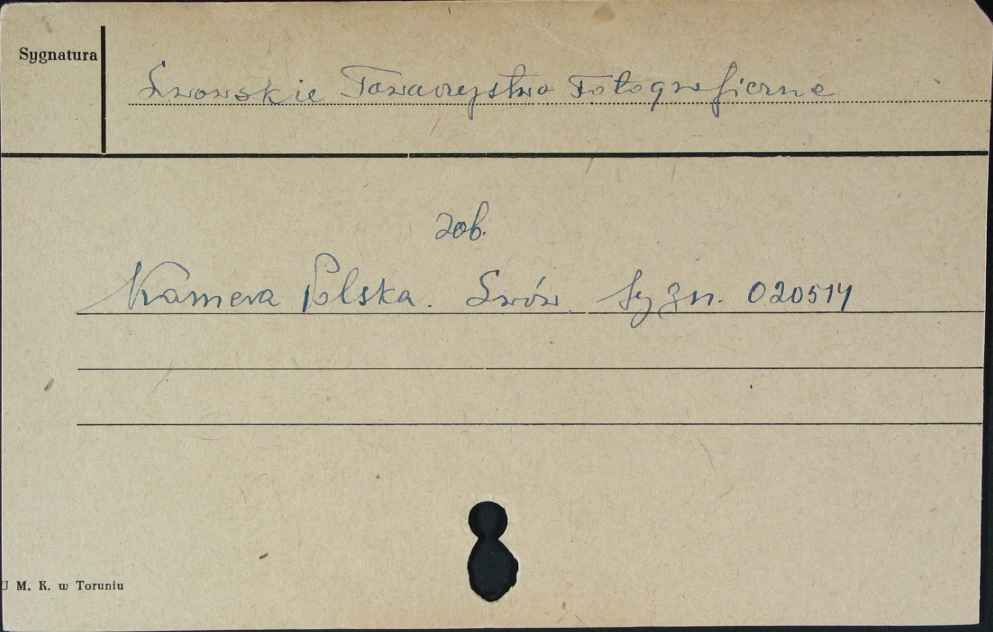 Sygnatura
Lwowskie Towarzystwo Fotograficzne
zob.
Kamera Polska. Lwów. Sygn. 020514
U M. K. w Toruniu